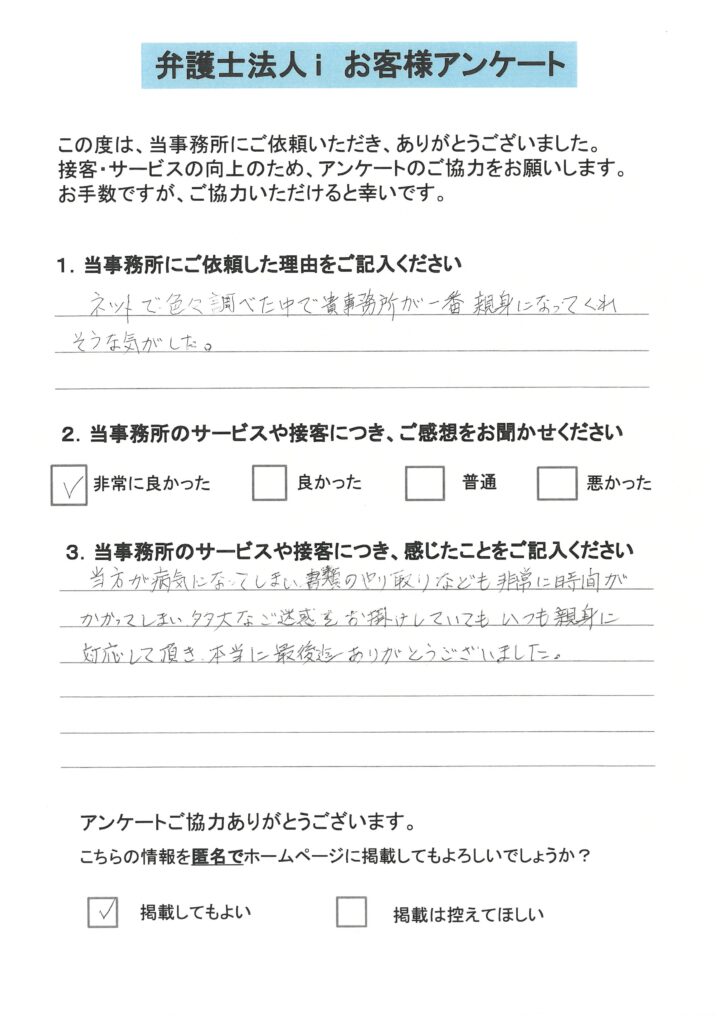 弁護士法人i お客様アンケート
この度は、当事務所にご依頼いただき、ありがとうございました。
接客・サービスの向上のため、アンケートのご協力をお願いします。
お手数ですが、ご協力いただけると幸いです。
1. 当事務所にご依頼した理由をご記入ください
ネットで色々調べた中で貴事務所が一番親身になってくれ
そうな気がした。
2. 当事務所のサービスや接客につき、ご感想をお聞かせください
✓ 非常に良かった 良かった 普通 悪かった
3. 当事務所のサービスや接客につき、感じたことをご記入ください
当方が病気になってしまい、書類のやり取りなども非常に時間が
かかってしまい、多大なご迷惑をお掛けしていてもいつも親身に
対応して頂き、本当に最後迄ありがとうございました。
アンケートご協力ありがとうございます。
こちらの情報を匿名でホームページに掲載してもよろしいでしょうか?
✓ 掲載してもよい 掲載は控えてほしい